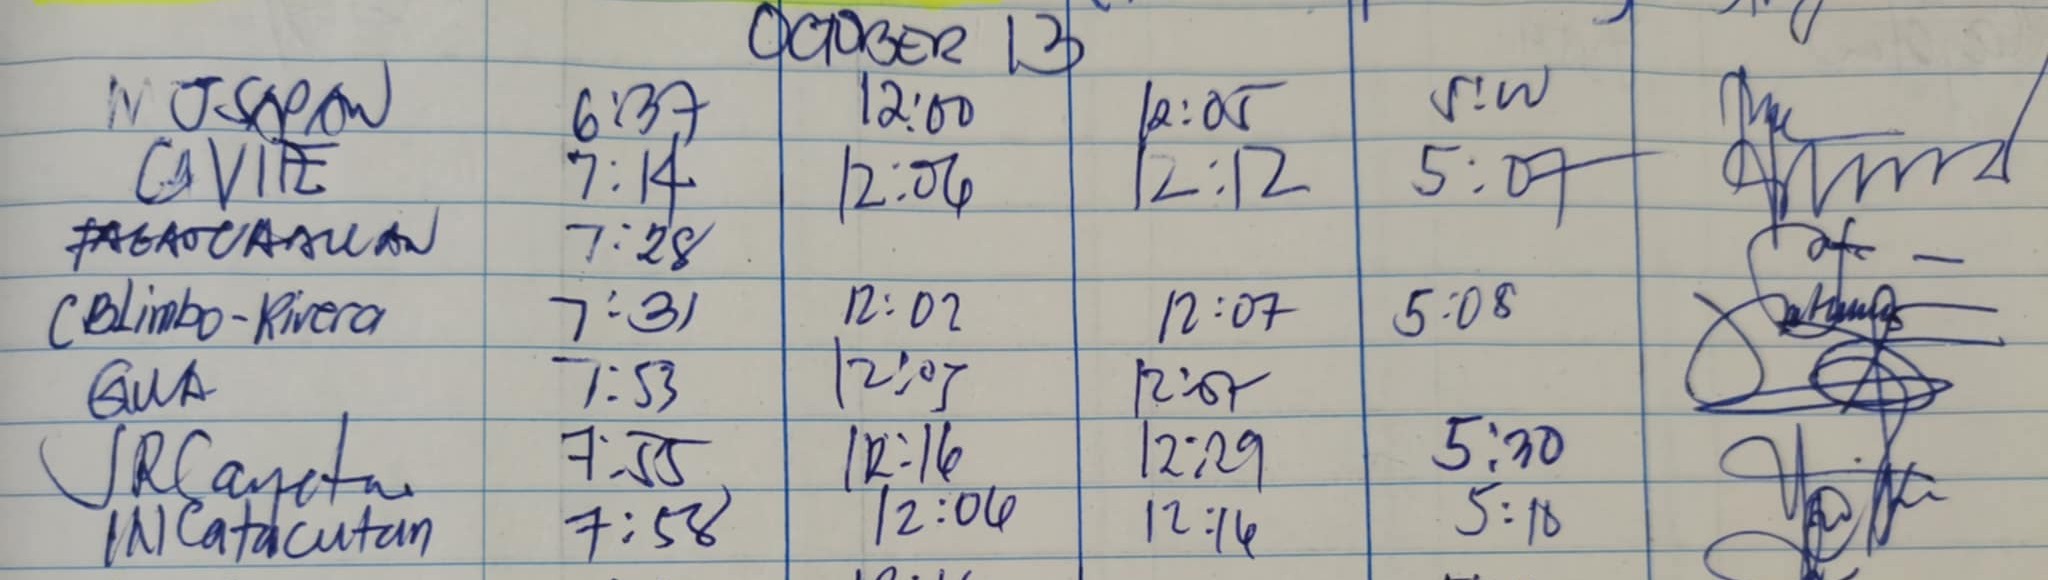 OCTOBER 13
NJSAPAN 6:37 12:00 12:05 5:00
CAVITE 7:14 12:06 12:12 5:07
7:28
CBLimbo-Rivera 7:31 12:02 12:07 5:08
GUA 7:53 12:05 12:07
JRCayetano 7:55 12:16 12:29 5:30
INCatacutan 7:58 12:06 12:16 5:10